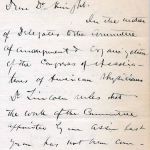 Dear Dr. Knight:
In the matter
of Delegates to the Committee
of arrangement & Organization
of the Congress of Associa-
tions of American Physicians
Dr Lincoln rules that
the work of the Committee
appointed by our Assn last
year has not been com-